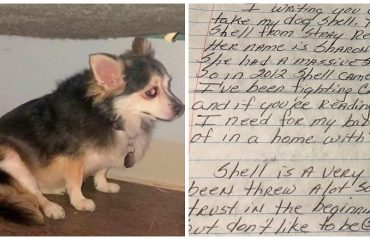 I WRITING YOU
TAKE MY DOG SHELL. T
SHELL FROM STRAY RE
HER NAME IS SHARON
SHE HAD A MASSIVE S
SO IN 2012 SHELL CAME
I'VE BEEN FIGHTING C
AND IF YOU'RE READING
I NEED FOR MY BA
OF IN A HOME WITH
SHELL IS A VERY
BEEN THREW A LOT SO
TRUST IN THE BEGINNI
BUT DON'T LIKE TO BE